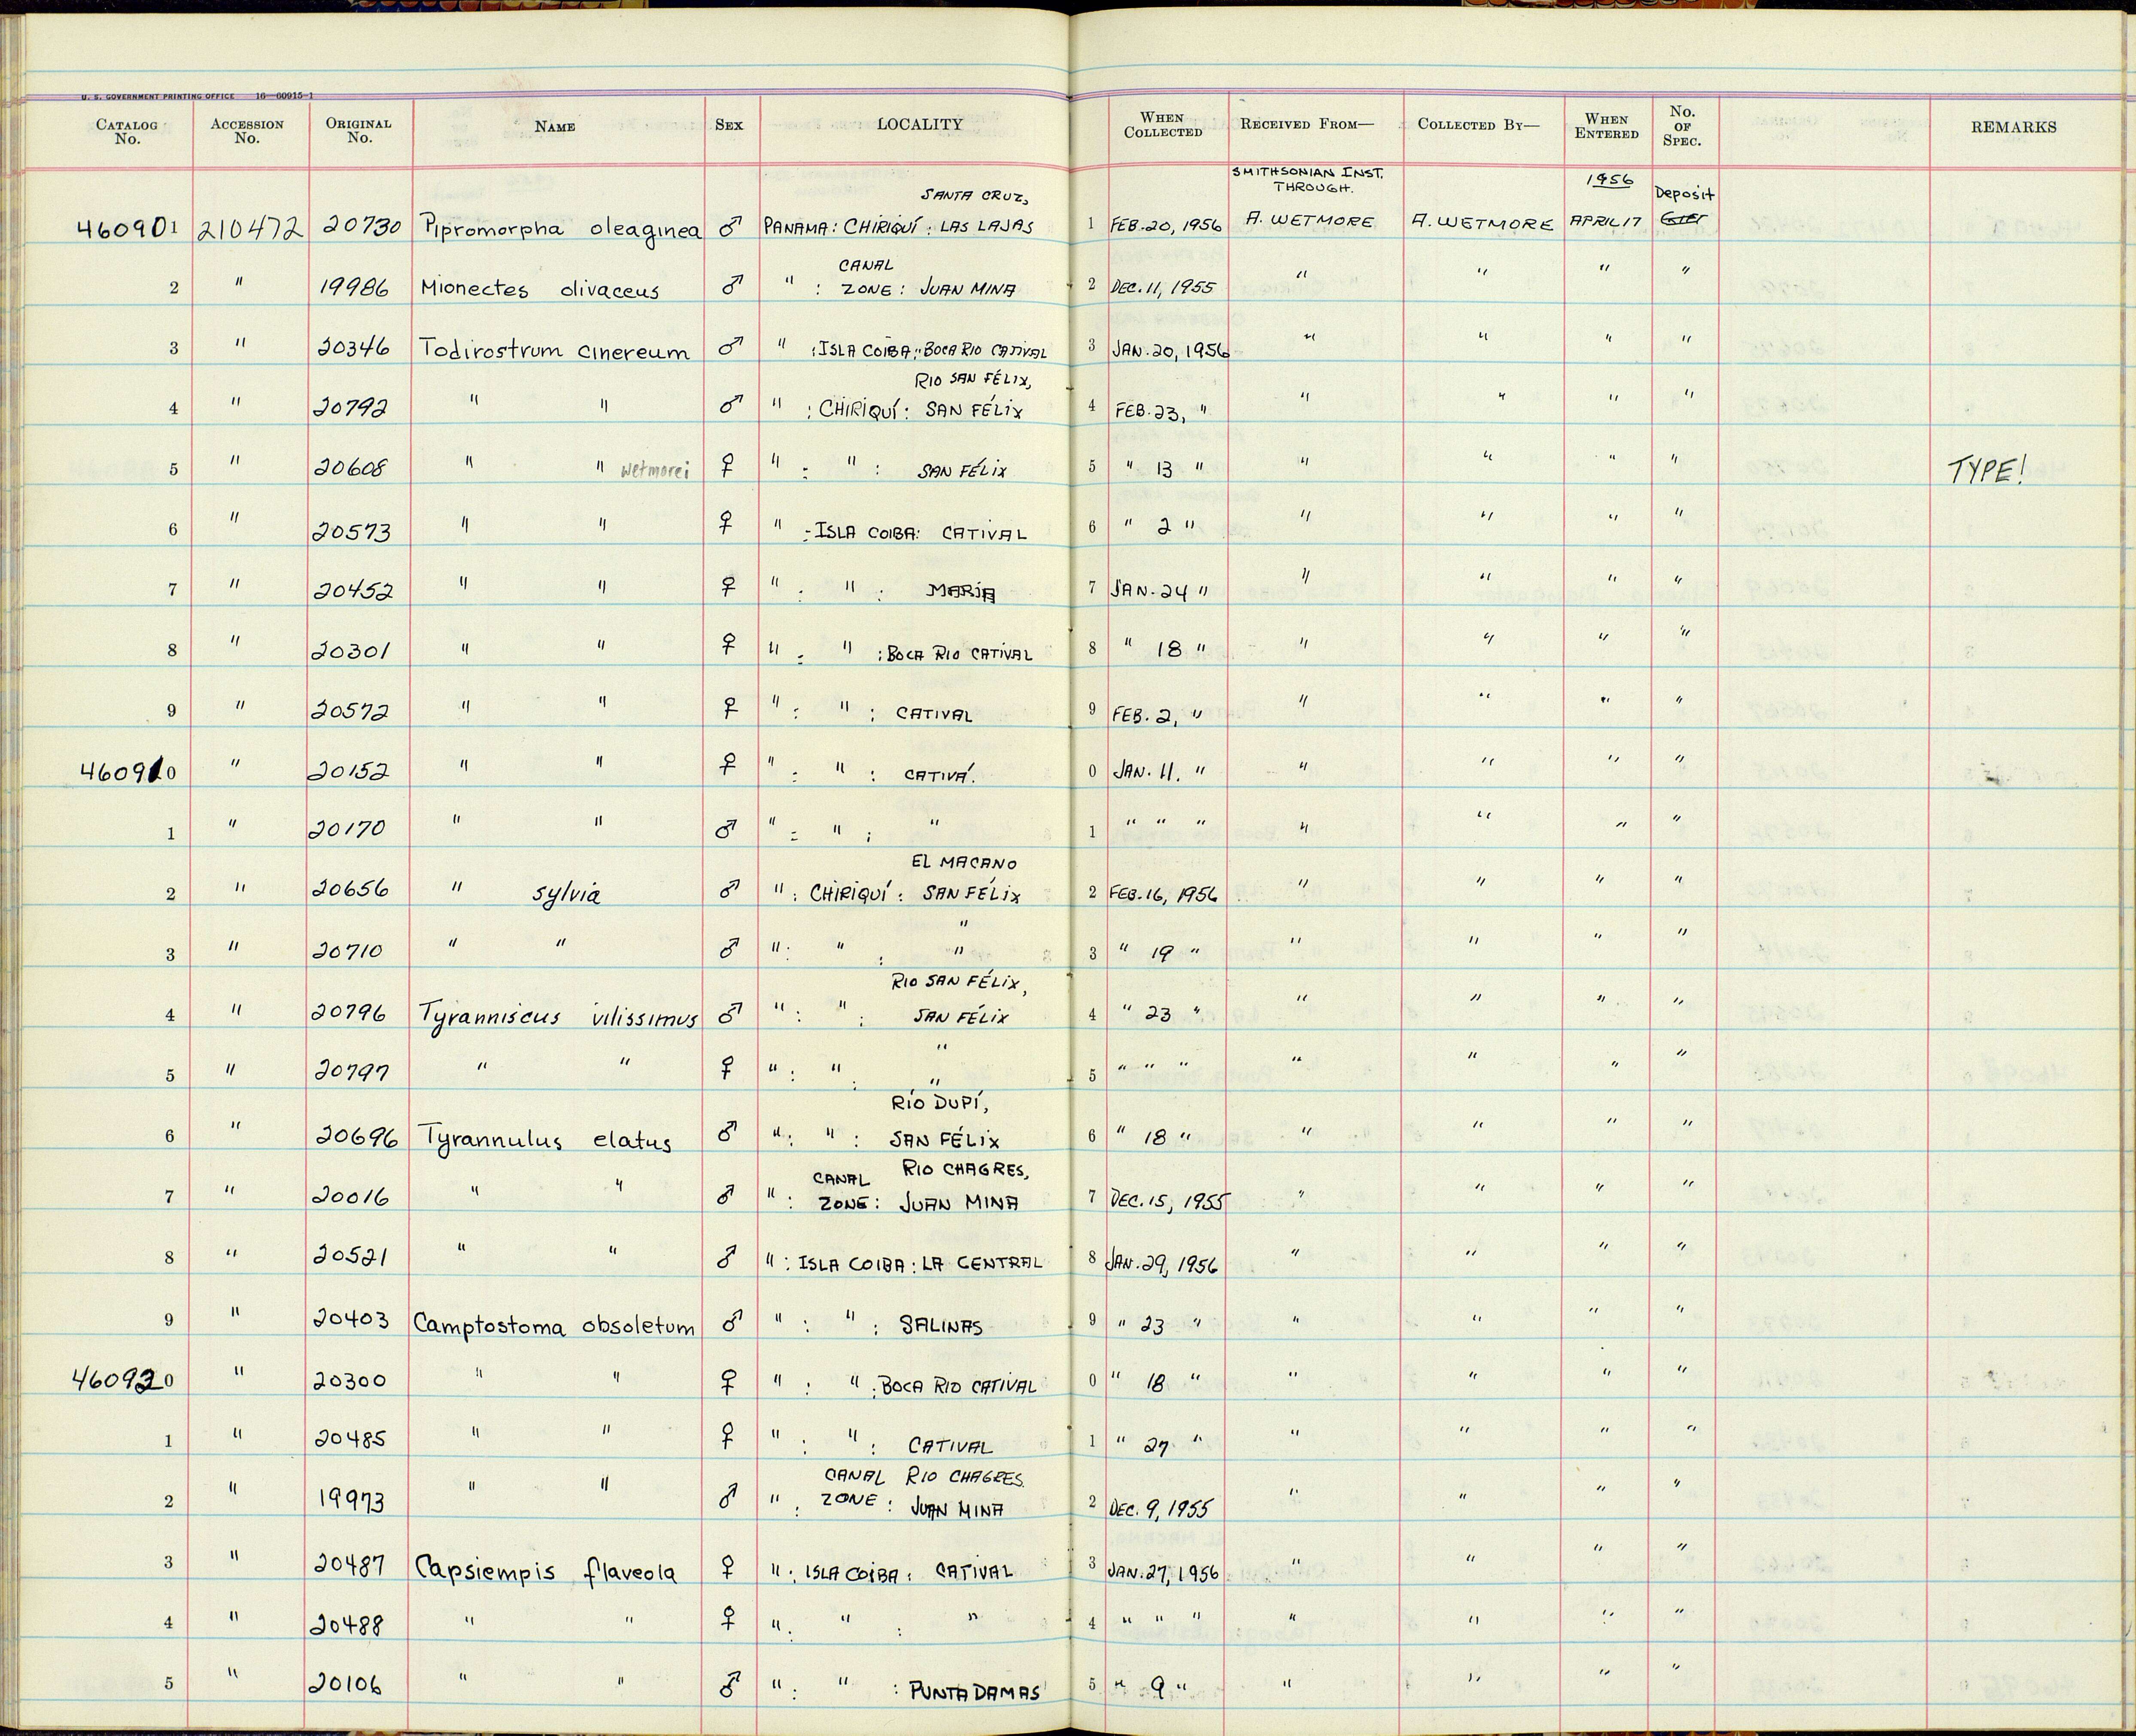 U. S. GOVERNMENT PRINTING OFFICE 16—60915-1
CATALOG No. ACCESSION No. ORIGINAL No. NAME SEX LOCALITY WHEN COLLECTED RECEIVED FROM— COLLECTED BY— WHEN ENTERED No. OF SPEC. REMARKS
SANTA CRUZ, SMITHSONIAN INST. THROUGH. 1956 Deposit
460901 210472 20730 Pipromorpha oleaginea ♂ PANAMA: CHIRIQUÍ: LAS LAJAS 1 FEB. 20, 1956 A. WETMORE A. WETMORE APRIL 17
CANAL
2 " 19986 Mionectes olivaceus ♂ " : ZONE: JUAN MINA 2 DEC. 11, 1955 " " " "
3 " 20346 Todirostrum cinereum ♂ " : ISLA COIBA: BOCA RIO CATIVAL 3 JAN. 20, 1956 " " " "
RIO SAN FÉLIX,
4 " 20792 " " ♂ " : CHIRIQUÍ: SAN FÉLIX 4 FEB. 23, " " " " "
5 " 20608 " " wetmorei ♀ " : " : SAN FÉLIX 5 " 13 " " " " " TYPE!
6 " 20573 " " ♀ " : ISLA COIBA: CATIVAL 6 " 2 " " " " "
7 " 20452 " " ♀ " : " : MARÍA 7 JAN. 24 " " " " "
8 " 20301 " " ♀ " : " : BOCA RIO CATIVAL 8 " 18 " " " " "
9 " 20572 " " ♀ " : " : CATIVAL 9 FEB. 2, " " " " "
460910 " 20152 " " ♀ " : " : CATIVÁ. 0 JAN. 11. " " " " "
1 " 20170 " " ♂ " : " : " 1 " " " " " " "
EL MACANO
2 " 20656 " sylvia ♂ " : CHIRIQUÍ: SAN FÉLIX 2 FEB. 16, 1956 " " " "
"
3 " 20710 " " ♂ " : " : " 3 " 19 " " " " "
RIO SAN FÉLIX,
4 " 20796 Tyranniscus vilissimus ♂ " : " : SAN FÉLIX 4 " 23 " " " " "
"
5 " 20797 " " ♀ " : " : " 5 " " " " " " "
RÍO DUPÍ,
6 " 20696 Tyrannulus elatus ♂ " : " : SAN FÉLIX 6 " 18 " " " " "
CANAL RIO CHAGRES,
7 " 20016 " " ♂ " : ZONE: JUAN MINA 7 DEC. 15, 1955 " " " "
8 " 20521 " " ♂ " : ISLA COIBA: LA CENTRAL 8 JAN. 29, 1956 " " " "
9 " 20403 Camptostoma obsoletum ♂ " : " : SALINAS 9 " 23 " " " " "
460920 " 20300 " " ♀ " : " : BOCA RIO CATIVAL 0 " 18 " " " " "
1 " 20485 " " ♀ " : " : CATIVAL 1 " 27 " " " " "
CANAL RIO CHAGRES.
2 " 19973 " " ♂ " : ZONE: JUAN MINA 2 DEC. 9, 1955 " " " "
3 " 20487 Capsiempis flaveola ♀ " : ISLA COIBA: CATIVAL 3 JAN. 27, 1956 " " " "
4 " 20488 " " ♀ " : " : " 4 " " " " " " "
5 " 20106 " " ♂ " : " : PUNTA DAMAS 5 " 9 " " " " "